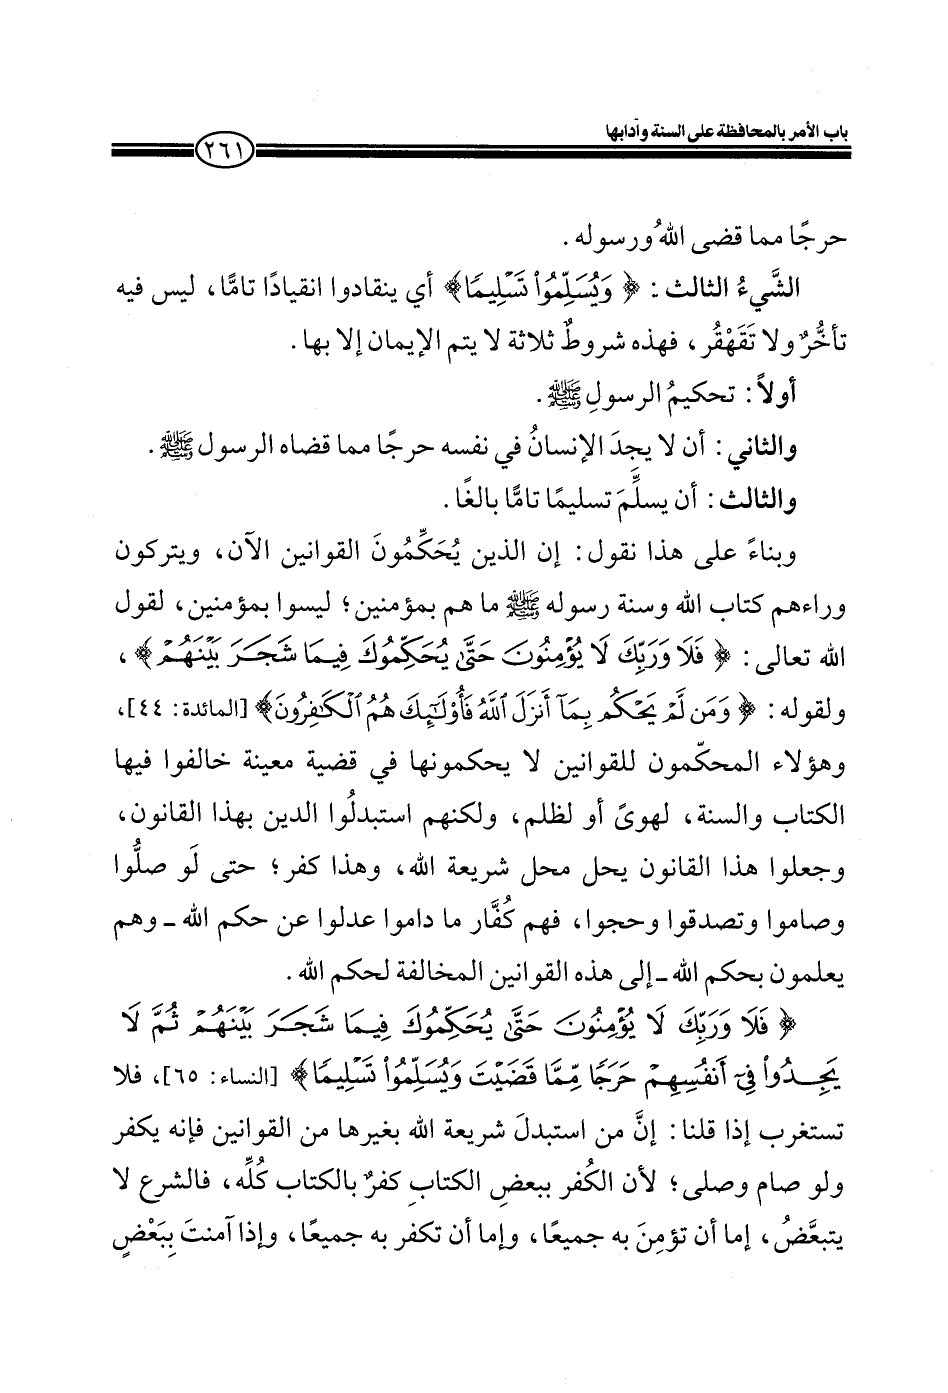 باب الأمر بالمحافظة على السنة وآدابها
٢٦١
حرجًا مما قضى اللهُ ورسوله .
الشَّيءُ الثالث : ﴿ وَيُسَلِّمُواْ تَسْلِيمًا ﴾ أي ينقادوا انقيادًا تامًّا، ليس فيه
تأخُّرٌ ولا تَقَهْقُر ، فهذه شروطٌ ثلاثة لا يتم الإيمان إلا بها .
أولاً : تحكيمُ الرسولِ ﷺ .
والثاني : أن لا يجدَ الإنسانُ في نفسه حرجًا مما قضاه الرسول ﷺ .
والثالث : أن يسلَّمَ تسليمًا تامًّا بالغًا .
وبناءً على هذا نقول : إن الذين يُحَكِّمُونَ القوانين الآن، ويتركون
وراءهم كتاب الله وسنة رسوله ﷺ ما هم بمؤمنين؛ ليسوا بمؤمنين، لقول
الله تعالى : ﴿ فَلَا وَرَبِّكَ لَا يُؤْمِنُونَ حَتَّىٰ يُحَكِّمُوكَ فِيمَا شَجَرَ بَيْنَهُمْ ﴾ ،
ولقوله : ﴿ وَمَن لَّمْ يَحْكُم بِمَآ أَنزَلَ ٱللَّهُ فَأُوْلَٰٓئِكَ هُمُ ٱلْكَٰفِرُونَ ﴾ [المائدة: ٤٤]،
وهؤلاء المحكّمون للقوانين لا يحكمونها في قضية معينة خالفوا فيها
الكتاب والسنة، لهوىً أو لظلم، ولكنهم استبدلُوا الدين بهذا القانون،
وجعلوا هذا القانون يحل محل شريعة الله، وهذا كفر؛ حتى لَو صلُّوا
وصاموا وتصدقوا وحجوا، فهم كُفَّار ما داموا عدلوا عن حكم الله ـ وهم
يعلمون بحكم الله ـ إلى هذه القوانين المخالفة لحكم الله .
﴿ فَلَا وَرَبِّكَ لَا يُؤْمِنُونَ حَتَّىٰ يُحَكِّمُوكَ فِيمَا شَجَرَ بَيْنَهُمْ ثُمَّ لَا
يَجِدُواْ فِىٓ أَنفُسِهِمْ حَرَجًا مِّمَّا قَضَيْتَ وَيُسَلِّمُواْ تَسْلِيمًا ﴾ [النساء: ٦٥]، فلا
تستغرب إذا قلنا : إنَّ من استبدلَ شريعة الله بغيرها من القوانين فإنه يكفر
ولو صام وصلى؛ لأن الكُفر ببعضِ الكتابِ كفرٌ بالكتاب كُلِّه، فالشرع لا
يتبعَّضُ، إما أن تؤمِنَ به جميعًا، وإما أن تكفر به جميعًا، وإذا آمنتَ بِبَعْضٍ